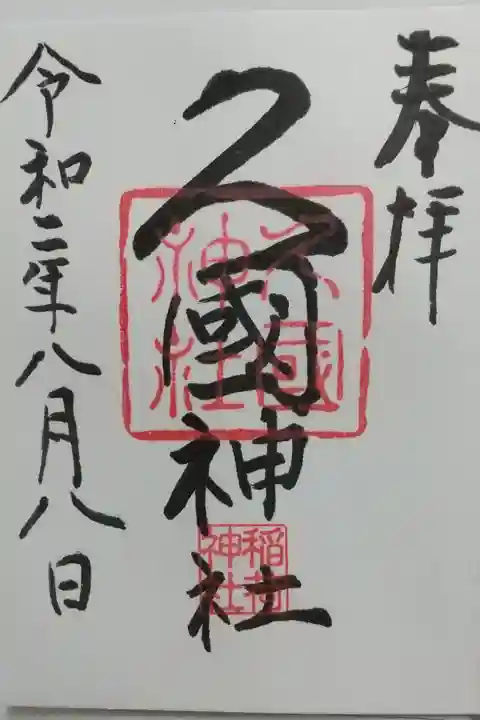 奉拝
久國神社
久國
神社
稲荷
神社
令和二年八月八日